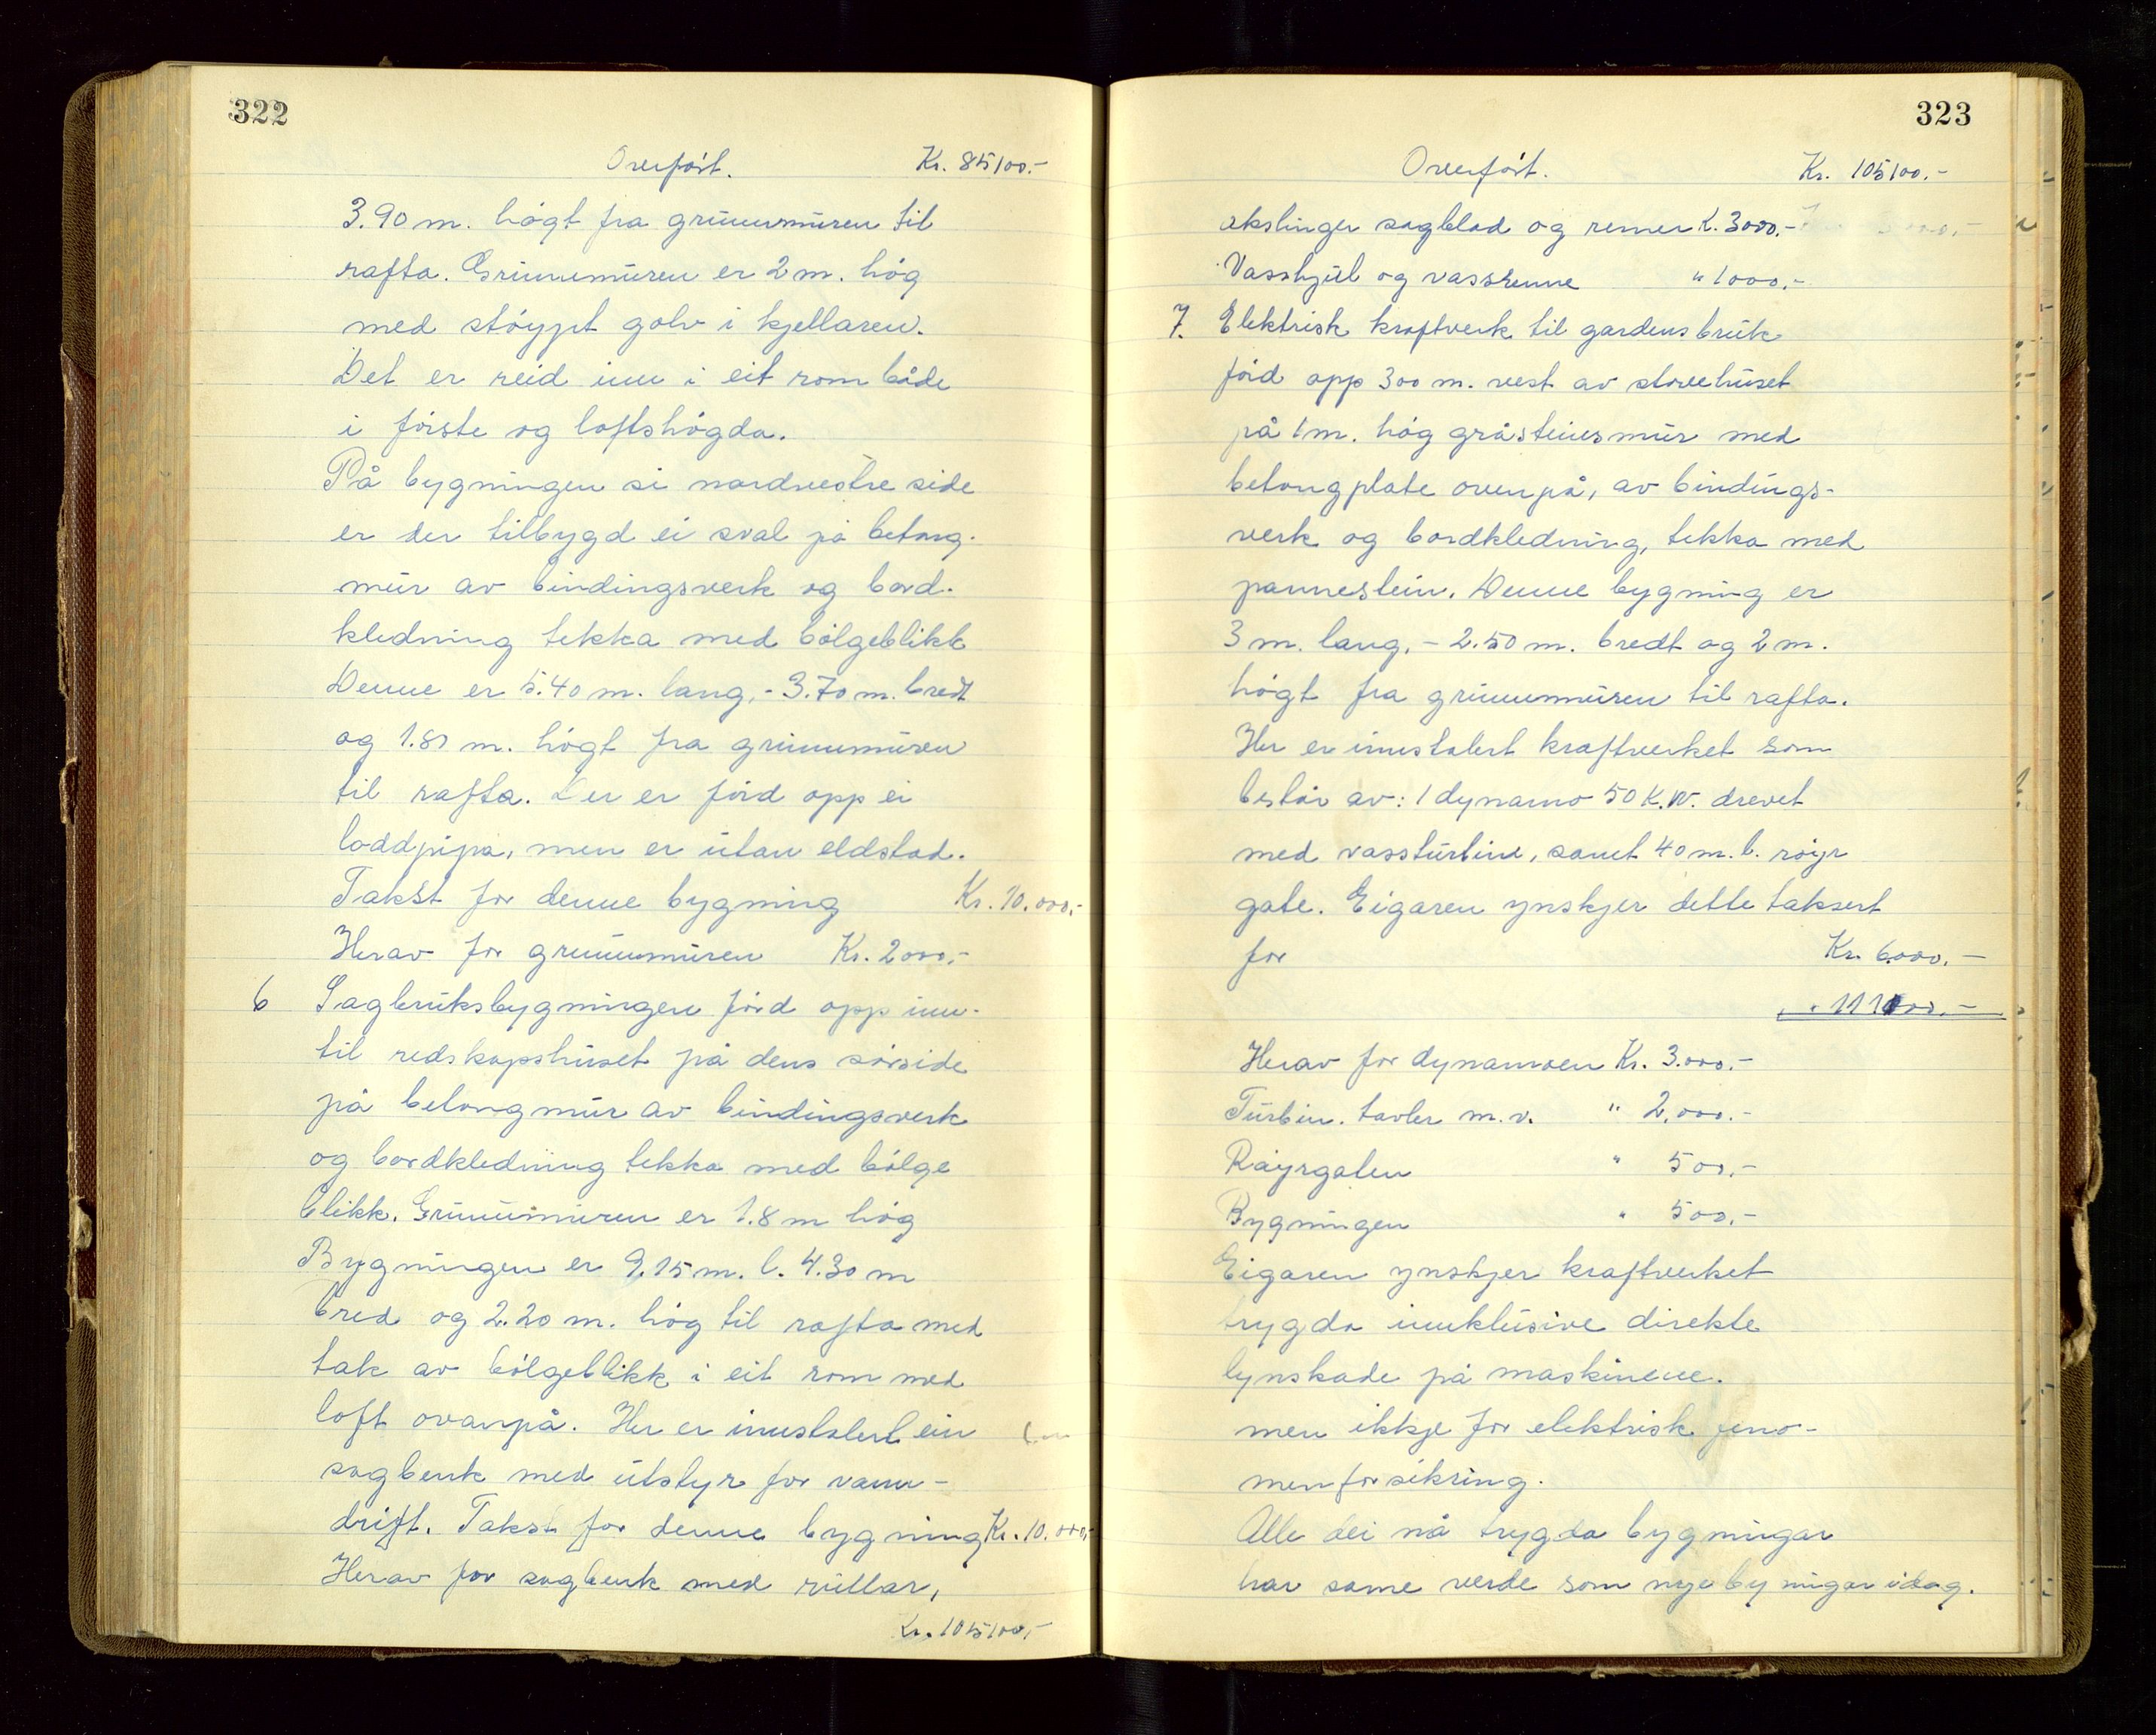 322
Overført. Kr. 85100.-
3.90 m. høgt fra grunnmuren til
rafta. Grunnmuren er 2 m. høg
med støypt golv i kjellaren.
Det er reid inn i eit rom både
i første og loftshøgda.
På bygningen si nordvestre side
er der tilbygd ei sval på betong-
mur av bindingsverk og bord-
kledning tekka med bølgeblikk
Denne er 5.40 m. lang,- 3.70 m. bredt
og 1.80 m. høgt fra grunnmuren
til rafta. Der er førd opp ei
loddpipa, men er utan eldstad.
Takst for denne bygning Kr. 10.000,-
Herav for grunnmuren Kr. 2000,-
6 Sagbruksbygningen førd opp inn-
til redskapshuset på dens sørside
på betongmur av bindingsverk
og bordkledning tekka med bølge
blikk. Grunnmuren er 1.8 m høg
Bygningen er 9,15 m. l. 4.30 m
bred og 2.20 m. høg til rafta med
tak av bølgeblikk i eit rom med
loft ovanpå. Her er innstalert ein
sagbenk med utstyr for vann-
drift. Takst for denne bygning Kr. 10.000,-
Herav for sagbenk med rullar,
Kr. 105100,-
323
Overført. Kr. 105100.-
akslinger sagblad og remer K. 3000.-
Vasshjul og vassrenne " 1000.-
7. Elektrisk kraftverk til gardens bruk
førd opp 300 m. vest av stovehuset
på 1 m. høg gråsteinsmur med
betongplate ovenpå, av bindings-
verk og bordkledning, tekka med
pannestein. Denne bygning er
3 m. lang, - 2.50 m. bredt og 2 m.
høgt fra grunnmuren til rafta.
Her er innstalert kraftverket som
består av: 1 dynamo 50 K.W. drevet
med vassturbine, samt 40 m. l. røyr
gate. Eigaren ynskjer dette taksert
for Kr. 6000.-
" 111100.-
Herav for dynamoen Kr. 3.000.-
Turbin. tavler m.v. " 2.000.-
Røyrgaten " 500.-
Bygningen " 500.-
Eigaren ynskjer kraftverket
trygda innklusive direkte
lynskade på maskinene.
men ikkje for elektrisk feno-
menforsikring.
Alle dei nå trygda bygningar
har same verde som nye bygningar idag.